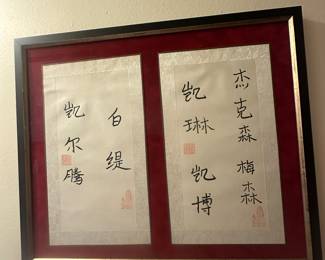 杰克森 梅森
凯琳 凯博
白缇
凯尔腾